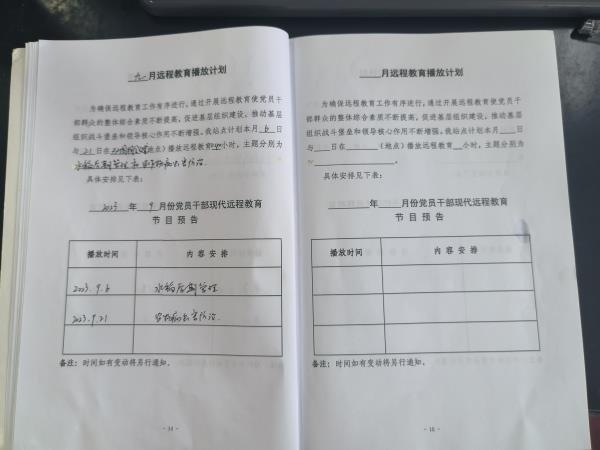 九 月远程教育播放计划
为确保远程教育工作有序进行,通过开展远程教育使党员干
部群众的整体综合素质不断提高,促进基层组织建设,推动基层
组织战斗堡垒和领导核心作用不断增强。我站点计划本月 6 日
与 21 日在 (地点)播放远程教育 小时,主题分别为
水稻后期管理和 病虫害防治。
具体安排见下表:
2023 年 9 月份党员干部现代远程教育
节目预告
播放时间 内容安排
2023.9.6 水稻后期管理
2023.9.21 农作物病虫害防治
备注:时间如有变动将另行通知。
- 14 -
月远程教育播放计划
为确保远程教育工作有序进行,通过开展远程教育使党员干
部群众的整体综合素质不断提高,促进基层组织建设,推动基层
组织战斗堡垒和领导核心作用不断增强。我站点计划本月 日
与 日在 (地点)播放远程教育 小时,主题分别为
。
具体安排见下表:
年 月份党员干部现代远程教育
节目预告
播放时间 内容安排
备注:时间如有变动将另行通知。